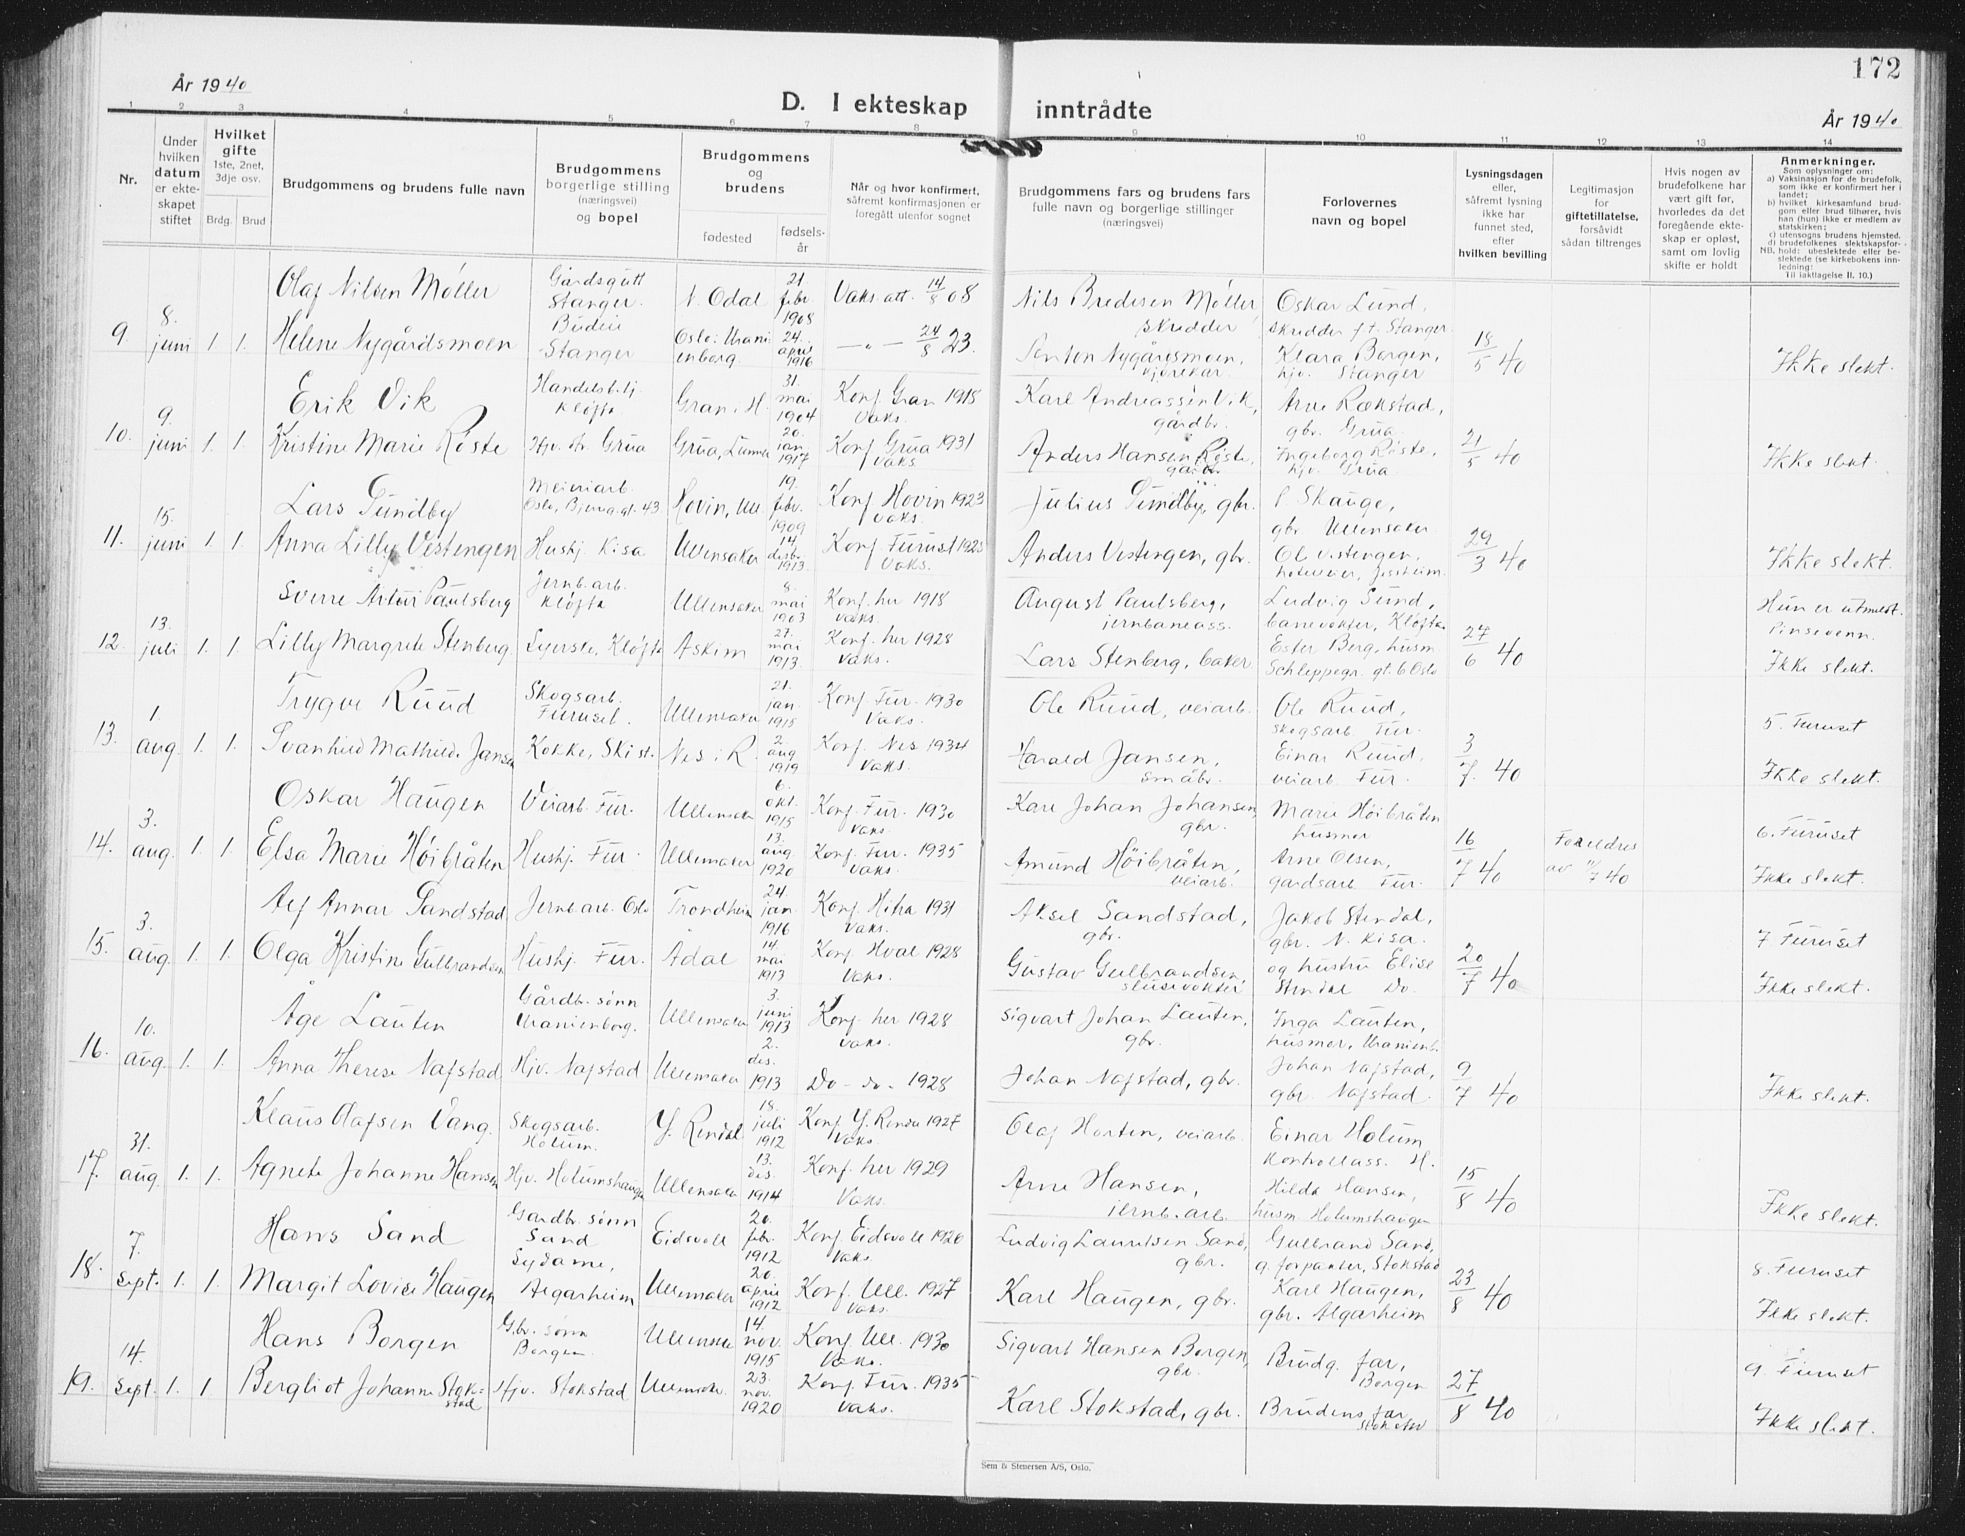 172
År 1940
D. I ekteskap inntrådte
År 1940
1 2 3 4 5 6 7 8 9 10 11 12 13 14
Nr.
Under hvilken datum er ekteskapet stiftet
Hvilket gifte 1ste, 2net, 3dje osv.
Brdg. Brud
Brudgommens og brudens fulle navn
Brudgommens borgerlige stilling (næringsvei) og bopel
Brudgommens og brudens
fødested
fødselsår
Når og hvor konfirmert, såfremt konfirmasjonen er foregått utenfor sognet
Brudgommens fars og brudens fars fulle navn og borgerlige stillinger (næringsvei)
Forlovernes navn og bopel
Lysningsdagen eller, såfremt lysning ikke har funnet sted, efter hvilken bevilling
Legitimasjon for giftetillatelse, forsåvidt sådan tiltrenges
Hvis nogen av brudefolkene har vært gift før, hvorledes da det foregående ekteskap er opløst, samt om lovlig skifte er holdt
Anmerkninger.
Som oplysninger om:
a) Vaksinasjon for de brudefolk, som ikke er konfirmert her i landet;
b) hvilket kirkesamfund brudgom eller brud tilhører, hvis han (hun) ikke er medlem av statskirken;
c) utensogns brudens hjemsted.
d) brudefolkenes slektskapsforhold: ubeslektede eller beslektede (se kirkebokens innledning:
NB. Til iakttagelse II. 10.)
9. 8. juni 1. 1.
Olaf Nilsen Møller Gårdsgutt Stanger. N. Odal 21 febr. 1908 Vaks. att. 14/8 08 Nils Bredesen Møller, skredder Oskar Lund, skredder f.t. Stanger
Helene Nygårdsmoen Budeie Stanger Oslo: Uranienborg. 24. april 1916 — " — 24/8 23. Nygårdsmoen, kjørekar. Klara Borgen, hjv. Stanger 18/5 40 Ikke slekt.
10. 9. juni 1. 1.
Erik Vik Handelsbetj. Kløfta Gran, H. 31. mai 1904 Konf. Gran 1918 Vaks. Karl Andreassen Vik, gårdbr. Arne Rækstad, gbr. Grua.
Kristine Marie Røste Hjv. Grua Grua, Lunner 20. jan 1917 Konf Grua 1931 Vaks Anders Hansen Røste, gårdbr. Ingeborg Røste, hjv. Grua 21/5 40 Ikke slekt.
11. 15. juni 1. 1.
Lars Sundby Meieriarb. Oslo, gt. 43 Hovin, Ull. 19. febr. 1909 Konf Hovin 1923 Vaks. Julius Sundby, gbr. P. Skauge, gbr. Ullensaker
Anna Lilly Vestengen Hushj. Kisa Ullensaker 14. desbr. 1913. Konf. Furuset 1928 Vaks. Anders Vestengen, gbr. Ol. Vestengen, Jessheim. 29/3 40 Ikke slekt.
12. 13. juli 1. 1.
Sverre Artur Paulsberg Jernb.arb. Kløfta Ullensaker 8. mai 1903 Konf. her 1918 Vaks. August Paulsberg, jernbaneass. Ludvig Sund, banevokter, Kløfta Hun er utmeldt. Pinsevenn.
Lilly Margrete Stenberg Syerske, Kløfta Askim 27. mai 1913. Konf. her 1928 Vaks. Lars Stenberg, baker Ester Berg, husm. Schleppegr. gt. 6 Oslo 27/6 40 Ikke slekt.
13. 1. aug. 1. 1.
Trygve Ruud Skogsarb. Furuset. Ullensaker 21. jan. 1915 Konf. Fur. 1930 Vaks. Ole Ruud, veiarb. Ole Ruud, skogsarb. Fur. 5. Furuset
Svanhild Mathilde Jansen Kokke, Ski st. Nes i R. 2. aug 1919 Konf. Nes 1934 Vaks. Harald Jansen, småbr. Einar Ruud, veiarb. Fur. 3/7. 40 Ikke slekt.
14. 3. aug. 1. 1.
Oskar Haugen Veiarb. Fur. Ullensaker 6. okt. 1915 Konf. Fur. 1930 Vaks. Karl Johan Johansen, gbr. Marie Høibråten husmor 6. Furuset
Elsa Marie Høibråten Hushj. Fur. Ullensaker 13. aug. 1920 Konf. Fur. 1935 Vaks. Amund Høibråten, veiarb. Arne Olsen, gardsarb. Fur. 16/7 40 Foreldres av 11/7 40 Ikke slekt.
15. 3. aug. 1. 1.
Alf Annar Sandstad Jernb.arb. Oslo Trondheim 24. jan. 1916 Konf. Hitra 1931 Vaks. Aksel Sandstad, gbr. Jakob Stendal, gbr. N. Kisa. 7 Furuset
Olga Kristine Gulbrandsen Hushj. Fur. Ådal 14. mai 1913 Konf Hval 1928 Vaks. Gustav Gulbrandsen, slusevokter og hustru Elise Stendal Do. 20/7 40 Ikke slekt.
16. 10. aug. 1. 1.
Åge Lauten Gårdbr. sønn Uranienborg. Ullensaker 3. juni 1913 Konf. her 1928 Vaks. Sigvart Johan Lauten, gbr. Inga Lauten, husmor, Uranienb.
Anna Therese Nafstad Hjv. Nafstad Ullensaker 2. des. 1913 Do — do. 1928 Johan Nafstad, gbr. Johan Nafstad, gbr. Nafstad. 9/7 40 Ikke slekt.
17. 31. aug. 1. 1.
Klaus Olafsen Vang. Skogsarb. Holum. Y. Rendal 18. juli 1912 Konf. Y. Rendal 1927 Vaks. Olaf Horten, veiarb. Einar Holum kontrollass. H.
Agnete Johanne Hansen Hjv. Holumshaugen Ullensaker 13. des. 1914 Konf. her 1929 Vaks. Arne Hansen, jernb.arb. Hilda Hansen, husm. Holumshaugen 15/8 40 Ikke slekt.
18. 7. sept. 1. 1.
Hans Sand Gardbr. sønn Sand Eidsvoll 20. febr. 1912 Konf. Eidsvoll 1926 Vaks. Ludvig Lauritsen Sand, gbr. Gulbrand Sand, g. forpakter, Stokstad 8. Furuset
Margit Lovise Haugen Sydame, Algarheim Ullensaker 20. april 1912 Konf. Ull. 1927 Vaks. Karl Haugen, gbr. Karl Haugen, gbr. Algarheim 23/8 40 Ikke slekt.
19. 14. sept. 1. 1.
Hans Borgen G.br. sønn Borgen Ullensaker 14. nov. 1915 Konf Ull. 1930 Vaks. Sigvart Hansen Borgen, gbr. Brudg. far, Borgen 9. Furuset
Bergliot Johanne Stokstad Hjv. Stokstad Ullensaker 23. nov. 1920 Konf. Fur. 1935 Vaks. Karl Stokstad, gbr. Brudens far Stokstad 27/8 40 Ikke slekt.
Sem & Stenersen A/S, Oslo.